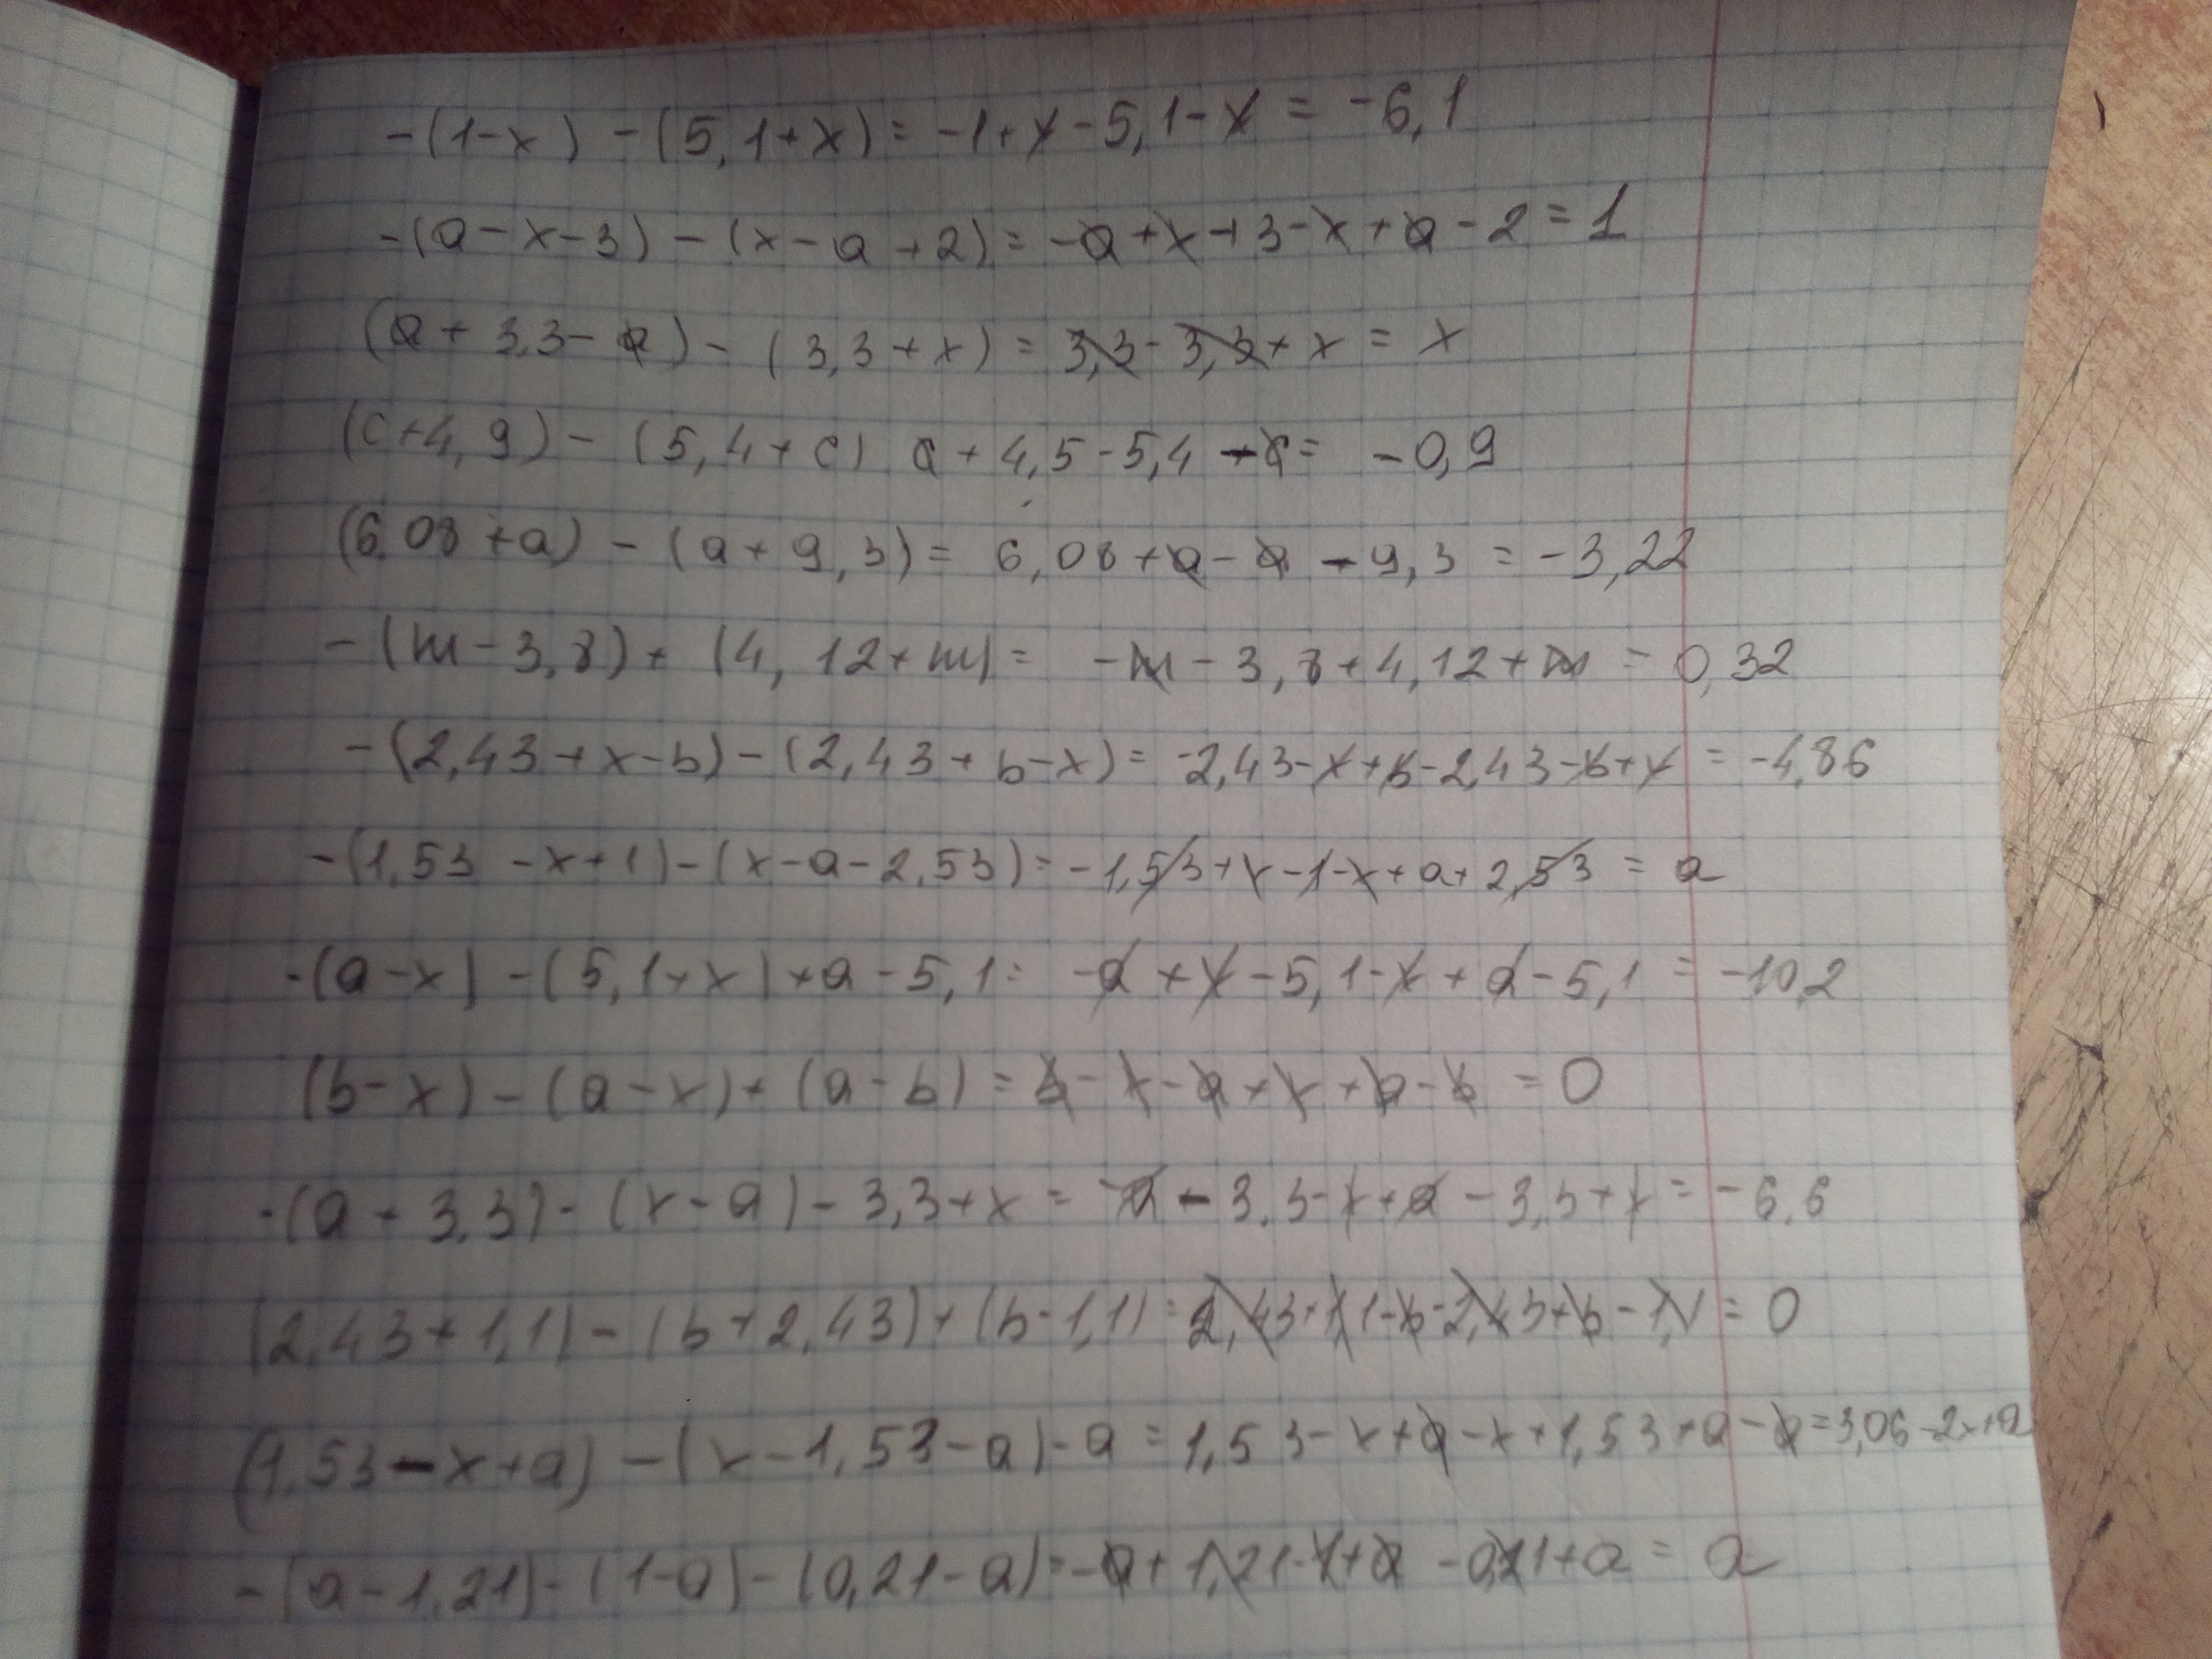 -(1-x)-(5,1+x)=-1+x-5,1-x=-6,1
-(a-x-3)-(x-a+2)=-a+x+3-x+a-2=1
(a+3,3-a)-(3,3+x)=3,3-3,3+x=x
(c+4,9)-(5,4+c) c+4,5-5,4-c=-0,9
(6,08+a)-(a+9,3)=6,08+a-a-9,3=-3,22
-(m-3,8)+(4,12+m)=-m-3,8+4,12+m=0,32
-(2,43+x-b)-(2,43+b-x)=-2,43-x+b-2,43-b+x=-4,86
-(1,53-x+1)-(x-a-2,53)=-1,53+x-1-x+a+2,53=a
-(a-x)-(5,1+x)+a-5,1=-a+x-5,1-x+a-5,1=-10,2
(b-x)-(a-x)+(a-b)=b-x-a+x+a-b=0
-(a+3,3)-(x-a)-3,3+x=-a-3,3-x+a-3,3+x=-6,6
(2,43+1,1)-(b+2,43)+(b-1,1)=2,43+1,1-b-2,43+b-1,1=0
(1,53-x+a)-(x-1,53-a)-a=1,53-x+a-x+1,53+a-a=3,06-2x+a
-(a-1,21)-(1-a)-(0,21-a)=-a+1,21-1+a-0,21+a=a